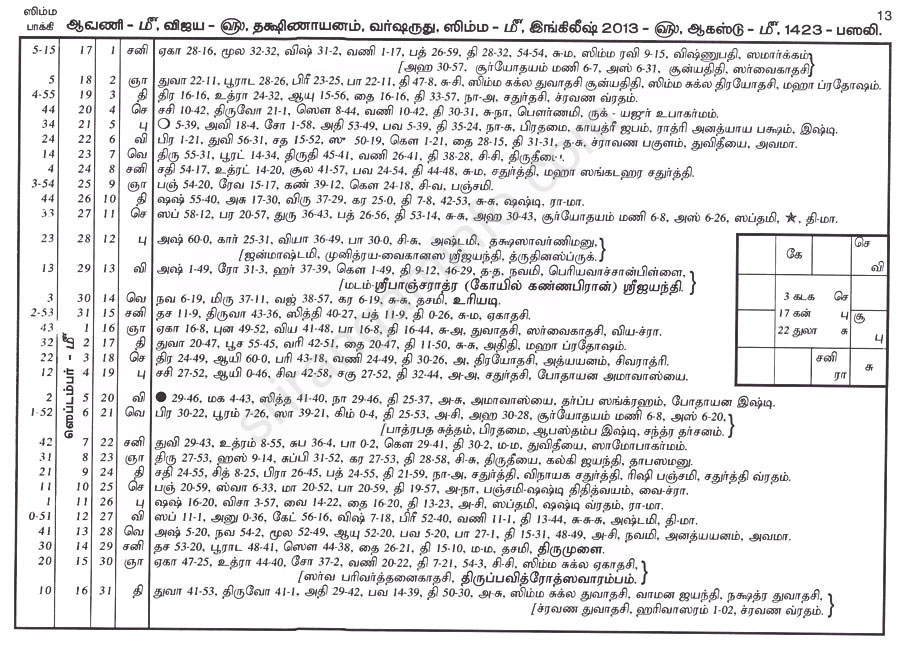 13
ஸிம்ம
பாக்கி
ஆவணி - மீ, விஜய - ௵, தக்ஷிணாயனம், வர்ஷருது, ஸிம்ம - மீ, இங்கிலீஷ் 2013 - ௵, ஆகஸ்டு - மீ, 1423 - பஸலி.
5-15 17 1 சனி ஏகா 28-16, மூல 32-32, விஷ் 31-2, வணி 1-17, பத் 26-59, தி 28-32, 54-54, சு-ம, ஸிம்ம ரவி 9-15, விஷ்ணுபதி, ஸமார்க்கம்}
[அஹ 30-57, சூர்யோதயம் மணி 6-7, அஸ் 6-31, சூன்யதிதி, ஸர்வைகாதசி}
5 18 2 ஞா துவா 22-11, பூராட 28-26, பிரீ 23-25, பா 22-11, தி 47-8, சு-சி, ஸிம்ம சுக்ல துவாதசி சூன்யதிதி, ஸிம்ம சுக்ல திரயோதசி, மஹா ப்ரதோஷம்.
4-55 19 3 தி திர 16-16, உத்ரா 24-32, ஆயு 15-56, தை 16-16, தி 33-57, நா-அ, சதுர்தசி, ச்ரவண வ்ரதம்.
44 20 4 செ சசி 10-42, திருவோ 21-1, ஸௌ 8-44, வணி 10-42, தி 30-31, சு-நா, பௌர்ணமி, ருக் - யஜுர் உபாகர்மம்.
34 21 5 பு ❍ 5-39, அவி 18-4, சோ 1-58, அதி 53-49, பவ 5-39, தி 35-24, நா-சு, பிரதமை, காயத்ரீ ஜபம், ராத்ரி அனத்யாய பக்ஷம், இஷ்டி.
24 22 6 வி பிர 1-21, துவி 56-31, சத 15-52, ஸு 50-19, கௌ 1-21, தை 28-15, தி 31-31, த-சு, ச்ராவண பகுளம், துவிதீயை, அவமா.
14 23 7 வெ திரு 55-31, பூரட் 14-34, திருதி 45-41, வணி 26-41, தி 38-28, சி-சி, திருதீயை.
4 24 8 சனி சதி 54-17, உத்ரட் 14-20, சூல 41-57, பவ 24-54, தி 44-48, சு-ம, சதுர்த்தி, மஹா ஸங்கடஹர சதுர்த்தி.
3-54 25 9 ஞா பஞ் 54-20, ரேவ 15-17, கண் 39-12, கௌ 24-18, சி-வ, பஞ்சமி.
44 26 10 தி ஷஷ் 55-40, அசு 17-30, விரு 37-29, கர 25-0, தி 7-8, 42-53, சு-சு, ஷஷ்டி, ரா-மா.
33 27 11 செ ஸப் 58-12, பர 20-57, துரு 36-43, பத் 26-56, தி 53-14, சு-சு, அஹ 30-43, சூர்யோதயம் மணி 6-8, அஸ் 6-26, ஸப்தமி, ★, தி-மா.
23 28 12 பு அஷ் 60-0, கார் 25-31, வியா 36-49, பா 30-0, சி-சு, அஷ்டமி, தக்ஷஸாவர்ணிமனு,}
[ஜன்மாஷ்டமி, முனித்ரய-வைகானஸ ஸ்ரீஜயந்தி, த்ருதினஸ்ப்ருக்.}
13 29 13 வி அஷ் 1-49, ரோ 31-3, ஹர் 37-39, கௌ 1-49, தி 9-12, 46-29, த-த, நவமி, பெரியவாச்சான்பிள்ளை,}
[மடம்-ஸ்ரீபாஞ்சராத்ர (கோயில் கண்ணபிரான்) ஸ்ரீஜயந்தி.}
3 30 14 வெ நவ 6-19, மிரு 37-11, வஜ் 38-57, கர 6-19, சு-சு, தசமி, உரியடி.
2-53 31 15 சனி தச 11-9, திருவா 43-36, ஸித்தி 40-27, பத் 11-9, தி 0-26, சு-ம, ஏகாதசி.
செப்டம்பர் - மீ
43 1 16 ஞா ஏகா 16-8, புன 49-52, விய 41-48, பா 16-8, தி 16-44, சு-அ, துவாதசி, ஸர்வைகாதசி, விய-ச்ரா.
32 2 17 தி துவா 20-47, பூச 55-45, வரி 42-51, தை 20-47, தி 11-50, சு-சு, அதிதி, மஹா ப்ரதோஷம்.
22 3 18 செ திர 24-49, ஆயி 60-0, பரி 43-18, வணி 24-49, தி 30-26, அ, திரயோதசி, அத்யயனம், சிவராத்ரி.
12 4 19 பு சசி 27-52, ஆயி 0-46, சிவ 42-58, சகு 27-52, தி 32-44, அ-அ, சதுர்தசி, போதாயன அமாவாஸ்யை.
2 5 20 வி ● 29-46, மக 4-43, ஸித்த 41-40, நா 29-46, தி 25-37, அ-சு, அமாவாஸ்யை, தர்ப்ப ஸங்க்ரஹம், போதாயன இஷ்டி.
1-52 6 21 வெ பிர 30-22, பூரம் 7-26, ஸா 39-21, கிம் 0-4, தி 25-53, அ-சி, அஹ 30-28, சூர்யோதயம் மணி 6-8, அஸ் 6-20,}
[பாத்ரபத சுத்தம், பிரதமை, ஆபஸ்தம்ப இஷ்டி, சந்த்ர தர்சனம்.}
42 7 22 சனி துவி 29-43, உத்ரம் 8-55, சுப 36-4, பா 0-2, கௌ 29-41, தி 30-2, ம-ம, துவிதீயை, ஸாமோபாகர்மம்.
31 8 23 ஞா திரு 27-53, ஹஸ் 9-14, சுப்பி 31-52, கர 27-53, தி 28-58, சி-சு, திருதீயை, கல்கி ஜயந்தி, தாபஸமனு.
21 9 24 தி சதி 24-55, சித் 8-25, பிரா 26-45, பத் 24-55, தி 21-59, நா-அ, சதுர்த்தி, விநாயக சதுர்த்தி, ரிஷி பஞ்சமி, சதுர்த்தி வ்ரதம்.
11 10 25 செ பஞ் 20-59, ஸ்வா 6-33, மா 20-52, பா 20-59, தி 19-57, அ-நா, பஞ்சமி-ஷஷ்டி திதித்வயம், வை-ச்ரா.
1 11 26 பு ஷஷ் 16-20, விசா 3-57, வை 14-22, தை 16-20, தி 13-23, அ-சி, ஸப்தமி, ஷஷ்டி வ்ரதம், ரா-மா.
0-51 12 27 வி ஸப் 11-1, அனு 0-36, கேட் 56-16, விஷ் 7-18, பிரீ 52-40, வணி 11-1, தி 13-44, சு-சு-சு, அஷ்டமி, தி-மா.
41 13 28 வெ அஷ் 5-20, நவ 54-2, மூல 52-49, ஆயு 52-20, பவ 5-20, பா 27-1, தி 15-31, 48-49, அ-சி, நவமி, அனத்யயனம், அவமா.
30 14 29 சனி தச 53-20, பூராட 48-41, ஸௌ 44-38, தை 26-21, தி 15-10, ம-ம, தசமி, திருமுளை.
20 15 30 ஞா ஏகா 47-25, உத்ரா 44-40, சோ 37-2, வணி 20-22, தி 7-21, 54-3, சி-சி, ஸிம்ம சுக்ல ஏகாதசி,}
[ஸர்வ பரிவர்த்தனைகாதசி, திருப்பவித்ரோத்ஸவாரம்பம்.}
10 16 31 தி துவா 41-53, திருவோ 41-1, அதி 29-42, பவ 14-39, தி 50-30, அ-சு, ஸிம்ம சுக்ல துவாதசி, வாமன ஜயந்தி, நக்ஷத்ர துவாதசி,}
[ச்ரவண துவாதசி, ஹரிவாஸரம் 1-02, ச்ரவண வ்ரதம்.}
கே செ
வி
3 கடக செ
17 கன் பு சூ
22 துலா சு பு
சனி
ரா சு